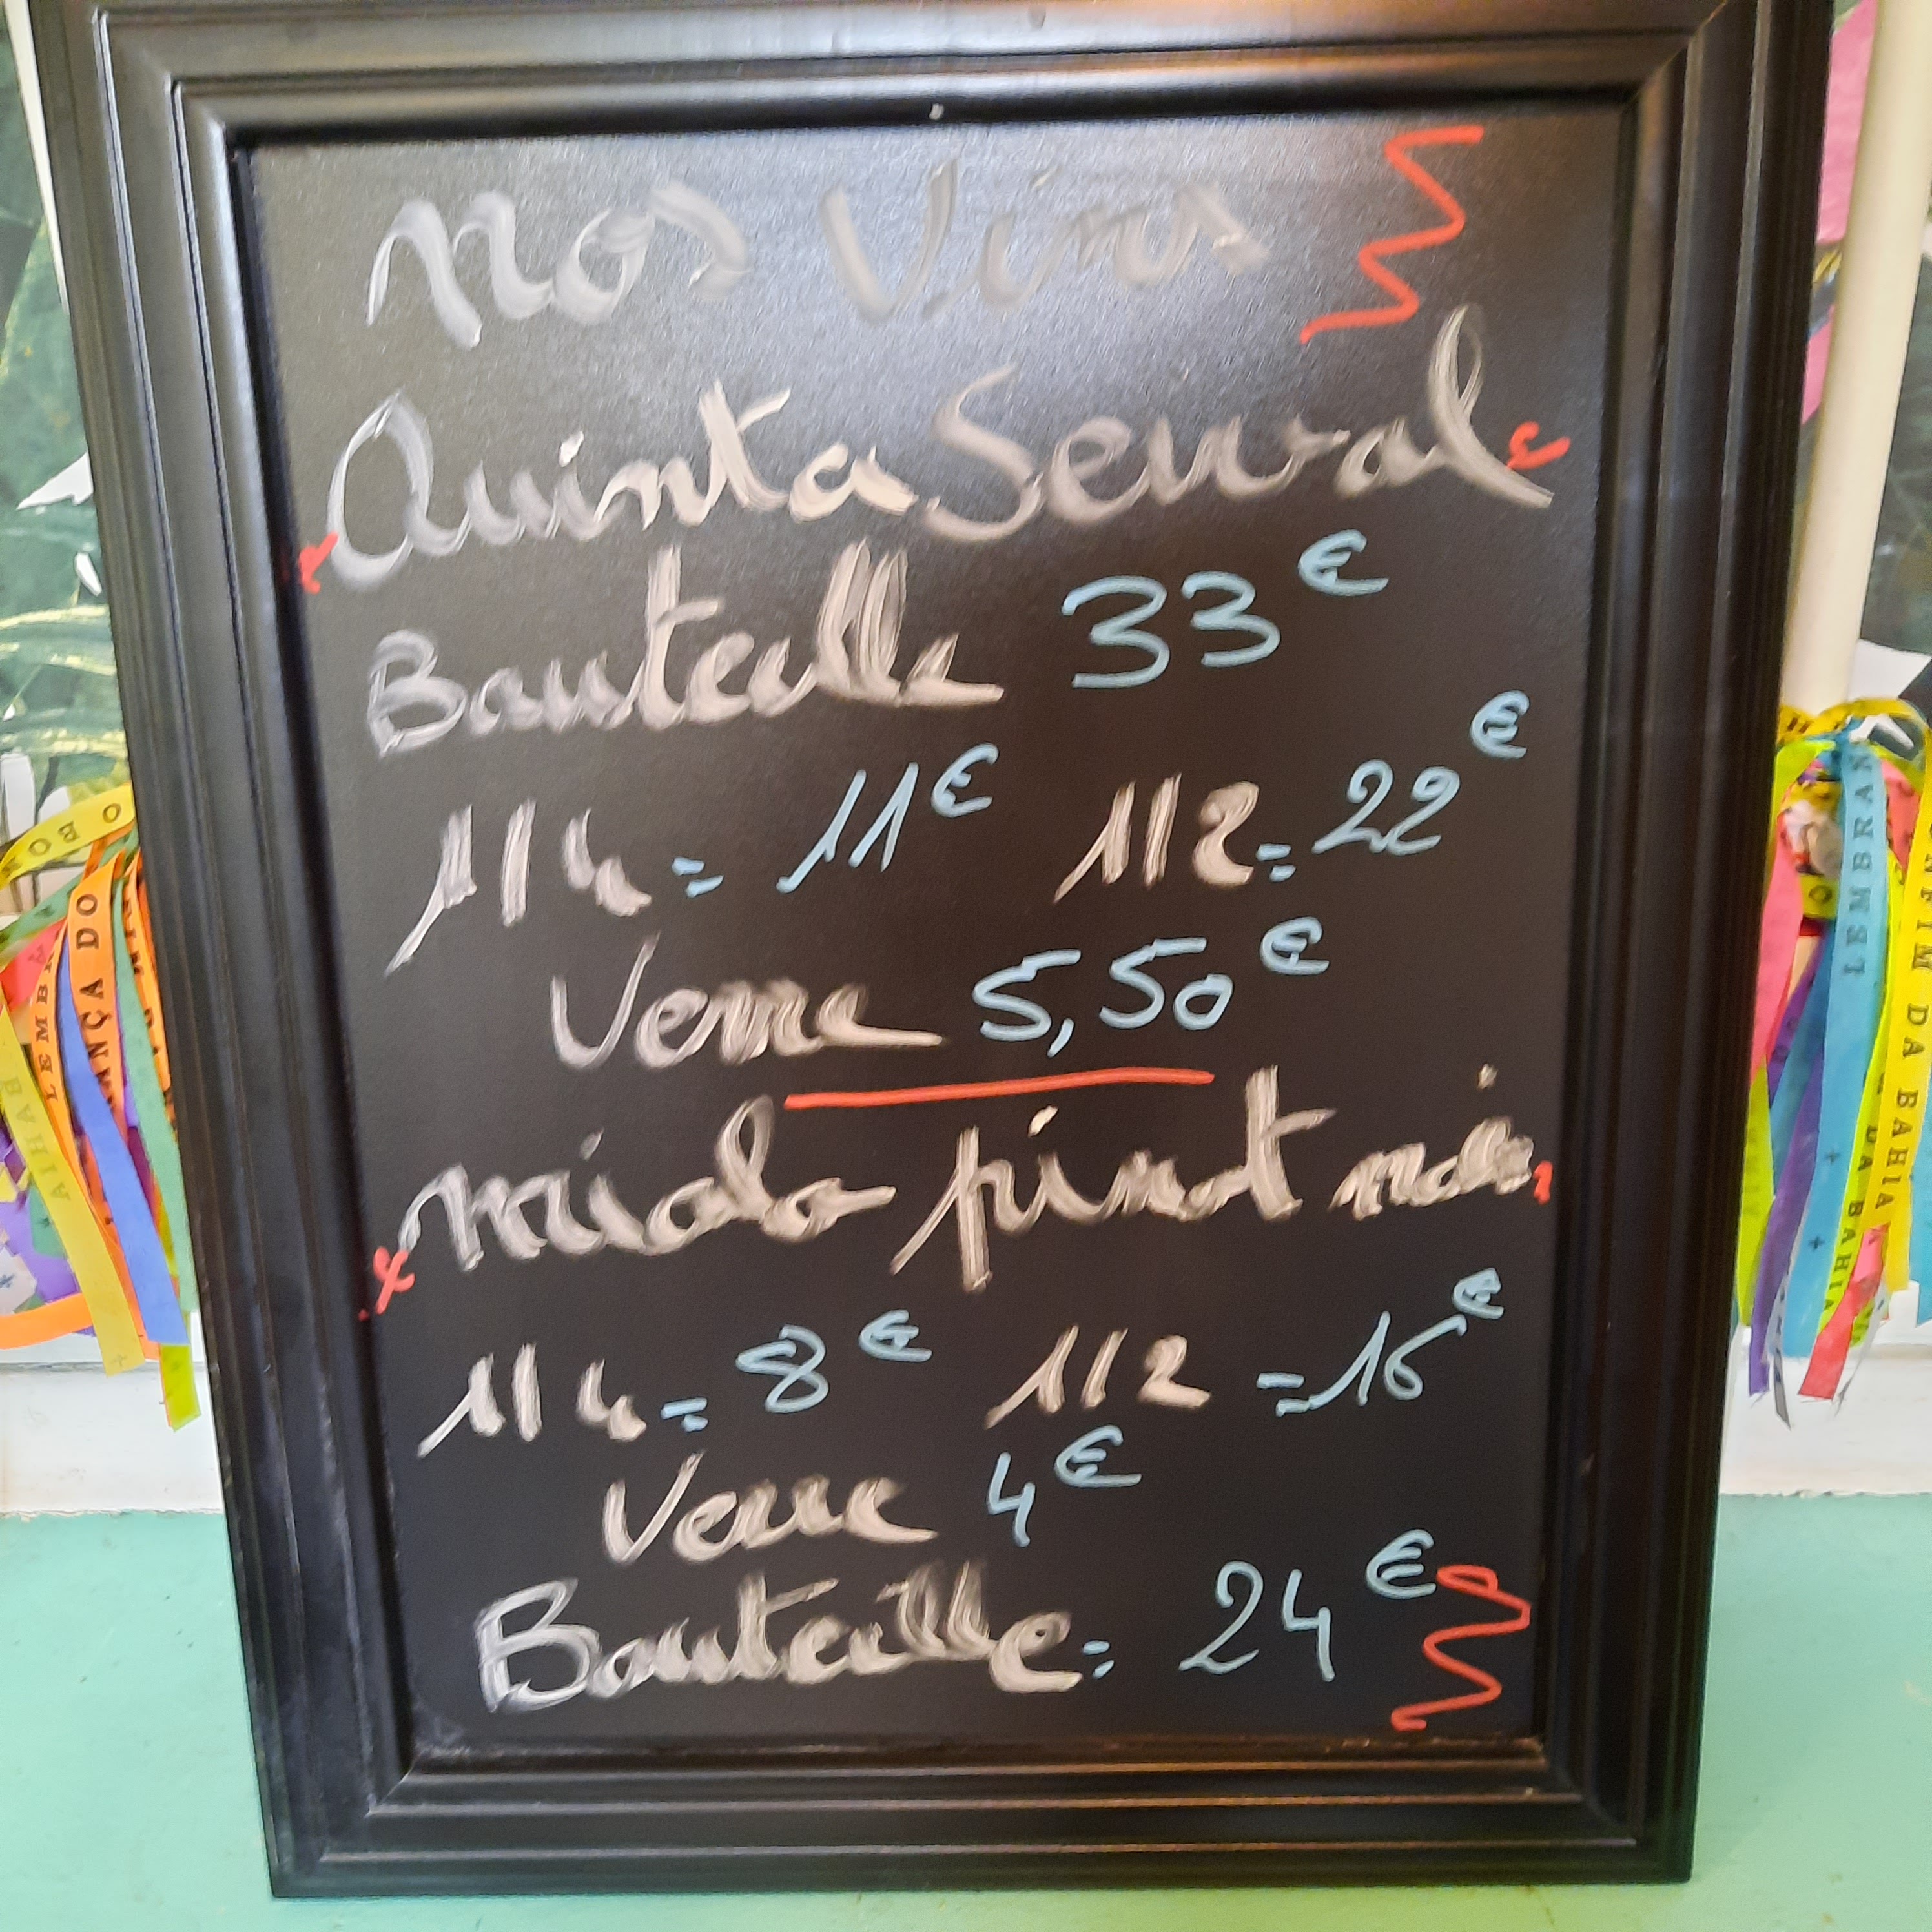 Nos Vins
Quinta Seival
Bouteille 33€
1/4 = 11€ 1/2 = 22€
Verre 5,50€
miolo pinot noir
1/4 = 8€ 1/2 = 16€
Verre 4€
Bouteille = 24€
O BO
LEMBR
ANÇA DO
BAHIA
LEMBRAN
NFIM DA BAHIA
DA BAHIA